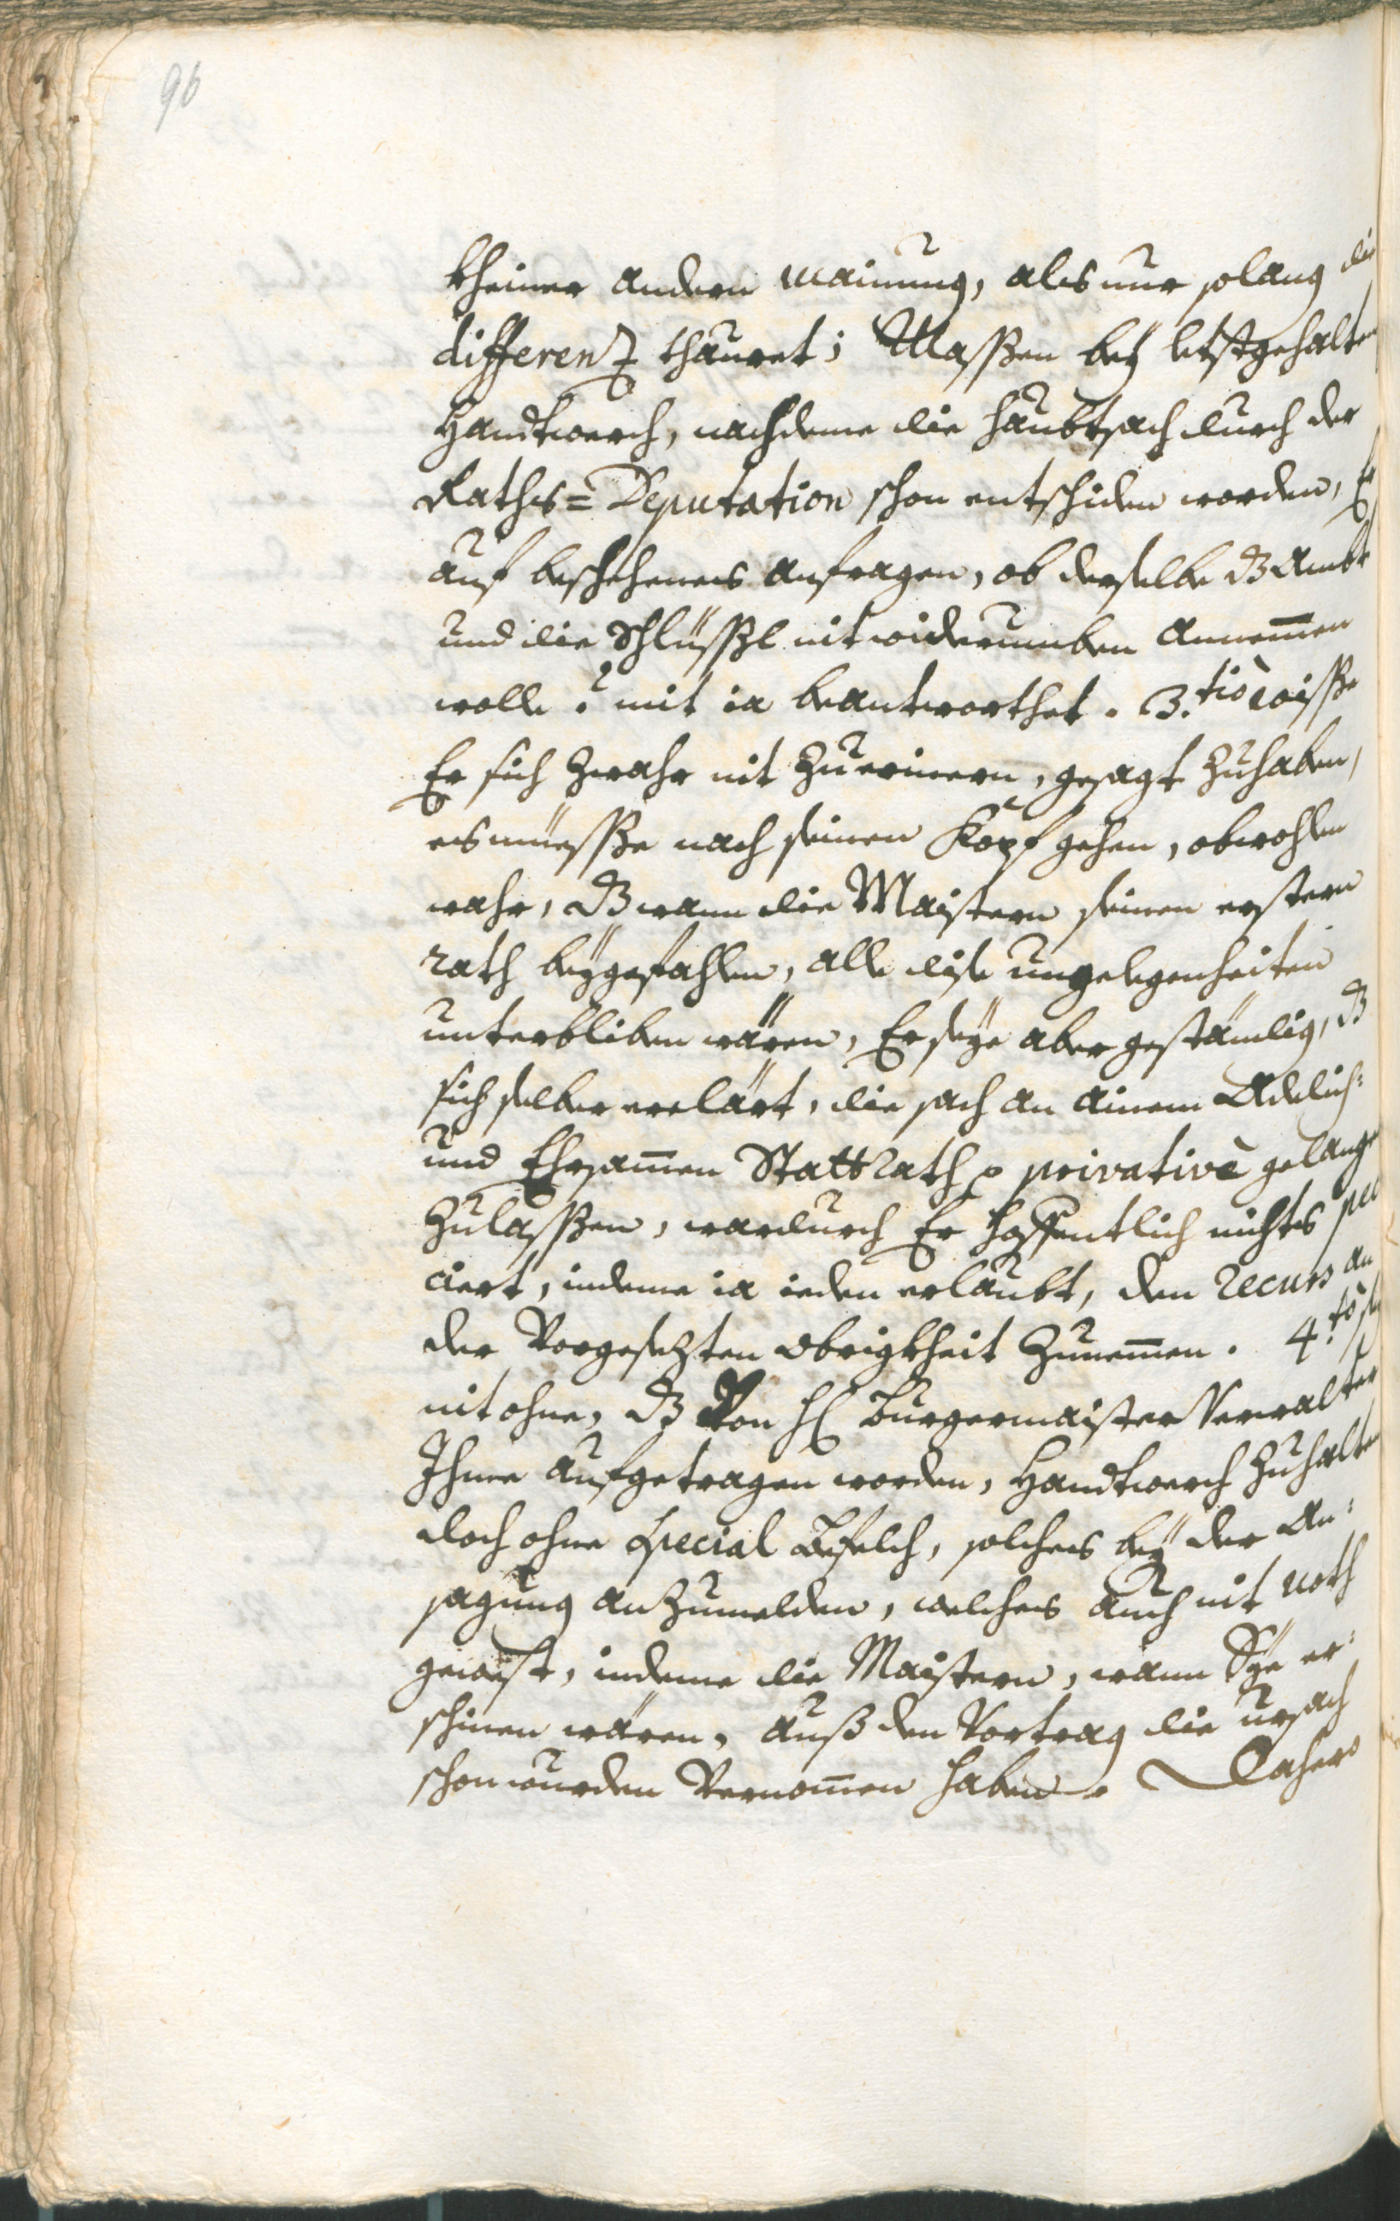 96
kheiner andern mainung, als nur solang die
differenz thauret; Massen bey letstgehalten
Handtwerch, nachdeme die haubtsach durch der
Raths= Deputation schon entschiden worden, Er
auf beschehenes anfragen, ob derselbe dz Ambt
und die Schlüssl nit widerumben annemmen
wolle? mit ia beantworthet. 3.tiò wisse
Er sich zwahr nit zuerinern, gesagt zuhaben,
es müesse nach seinen Kopf gehen, obwohlen
wahr, dz wann die Maistern seinen erstern
rath beygefahlen, alle dise ungelegenheiten
unterbliben wären, Er seye aber geständig, dz
sich selber erclärt, die sach an ainem Adelich=
und Ehrsammen Stattrath p privativè gelangen
zulassen, wardurch Er hoffentlich nichts pec
ciert, indeme ia ieden erlaubt, den recurs an
der Vorgesezten obrigkheit zunemmen. 4.tò sey
nit ohne, dz von H Burgermaister Verwalter
Ihme aufgetragen worden, Handtwerch zuhalten
doch ohne special Befelch, solches bey der An=
sagung anzumelden, welches auch nit noth
gewest, indeme die Maistern, wann Sye er=
schinen wären, auß den Vortrag die ursach
schon wurden vernommen haben. Dahero